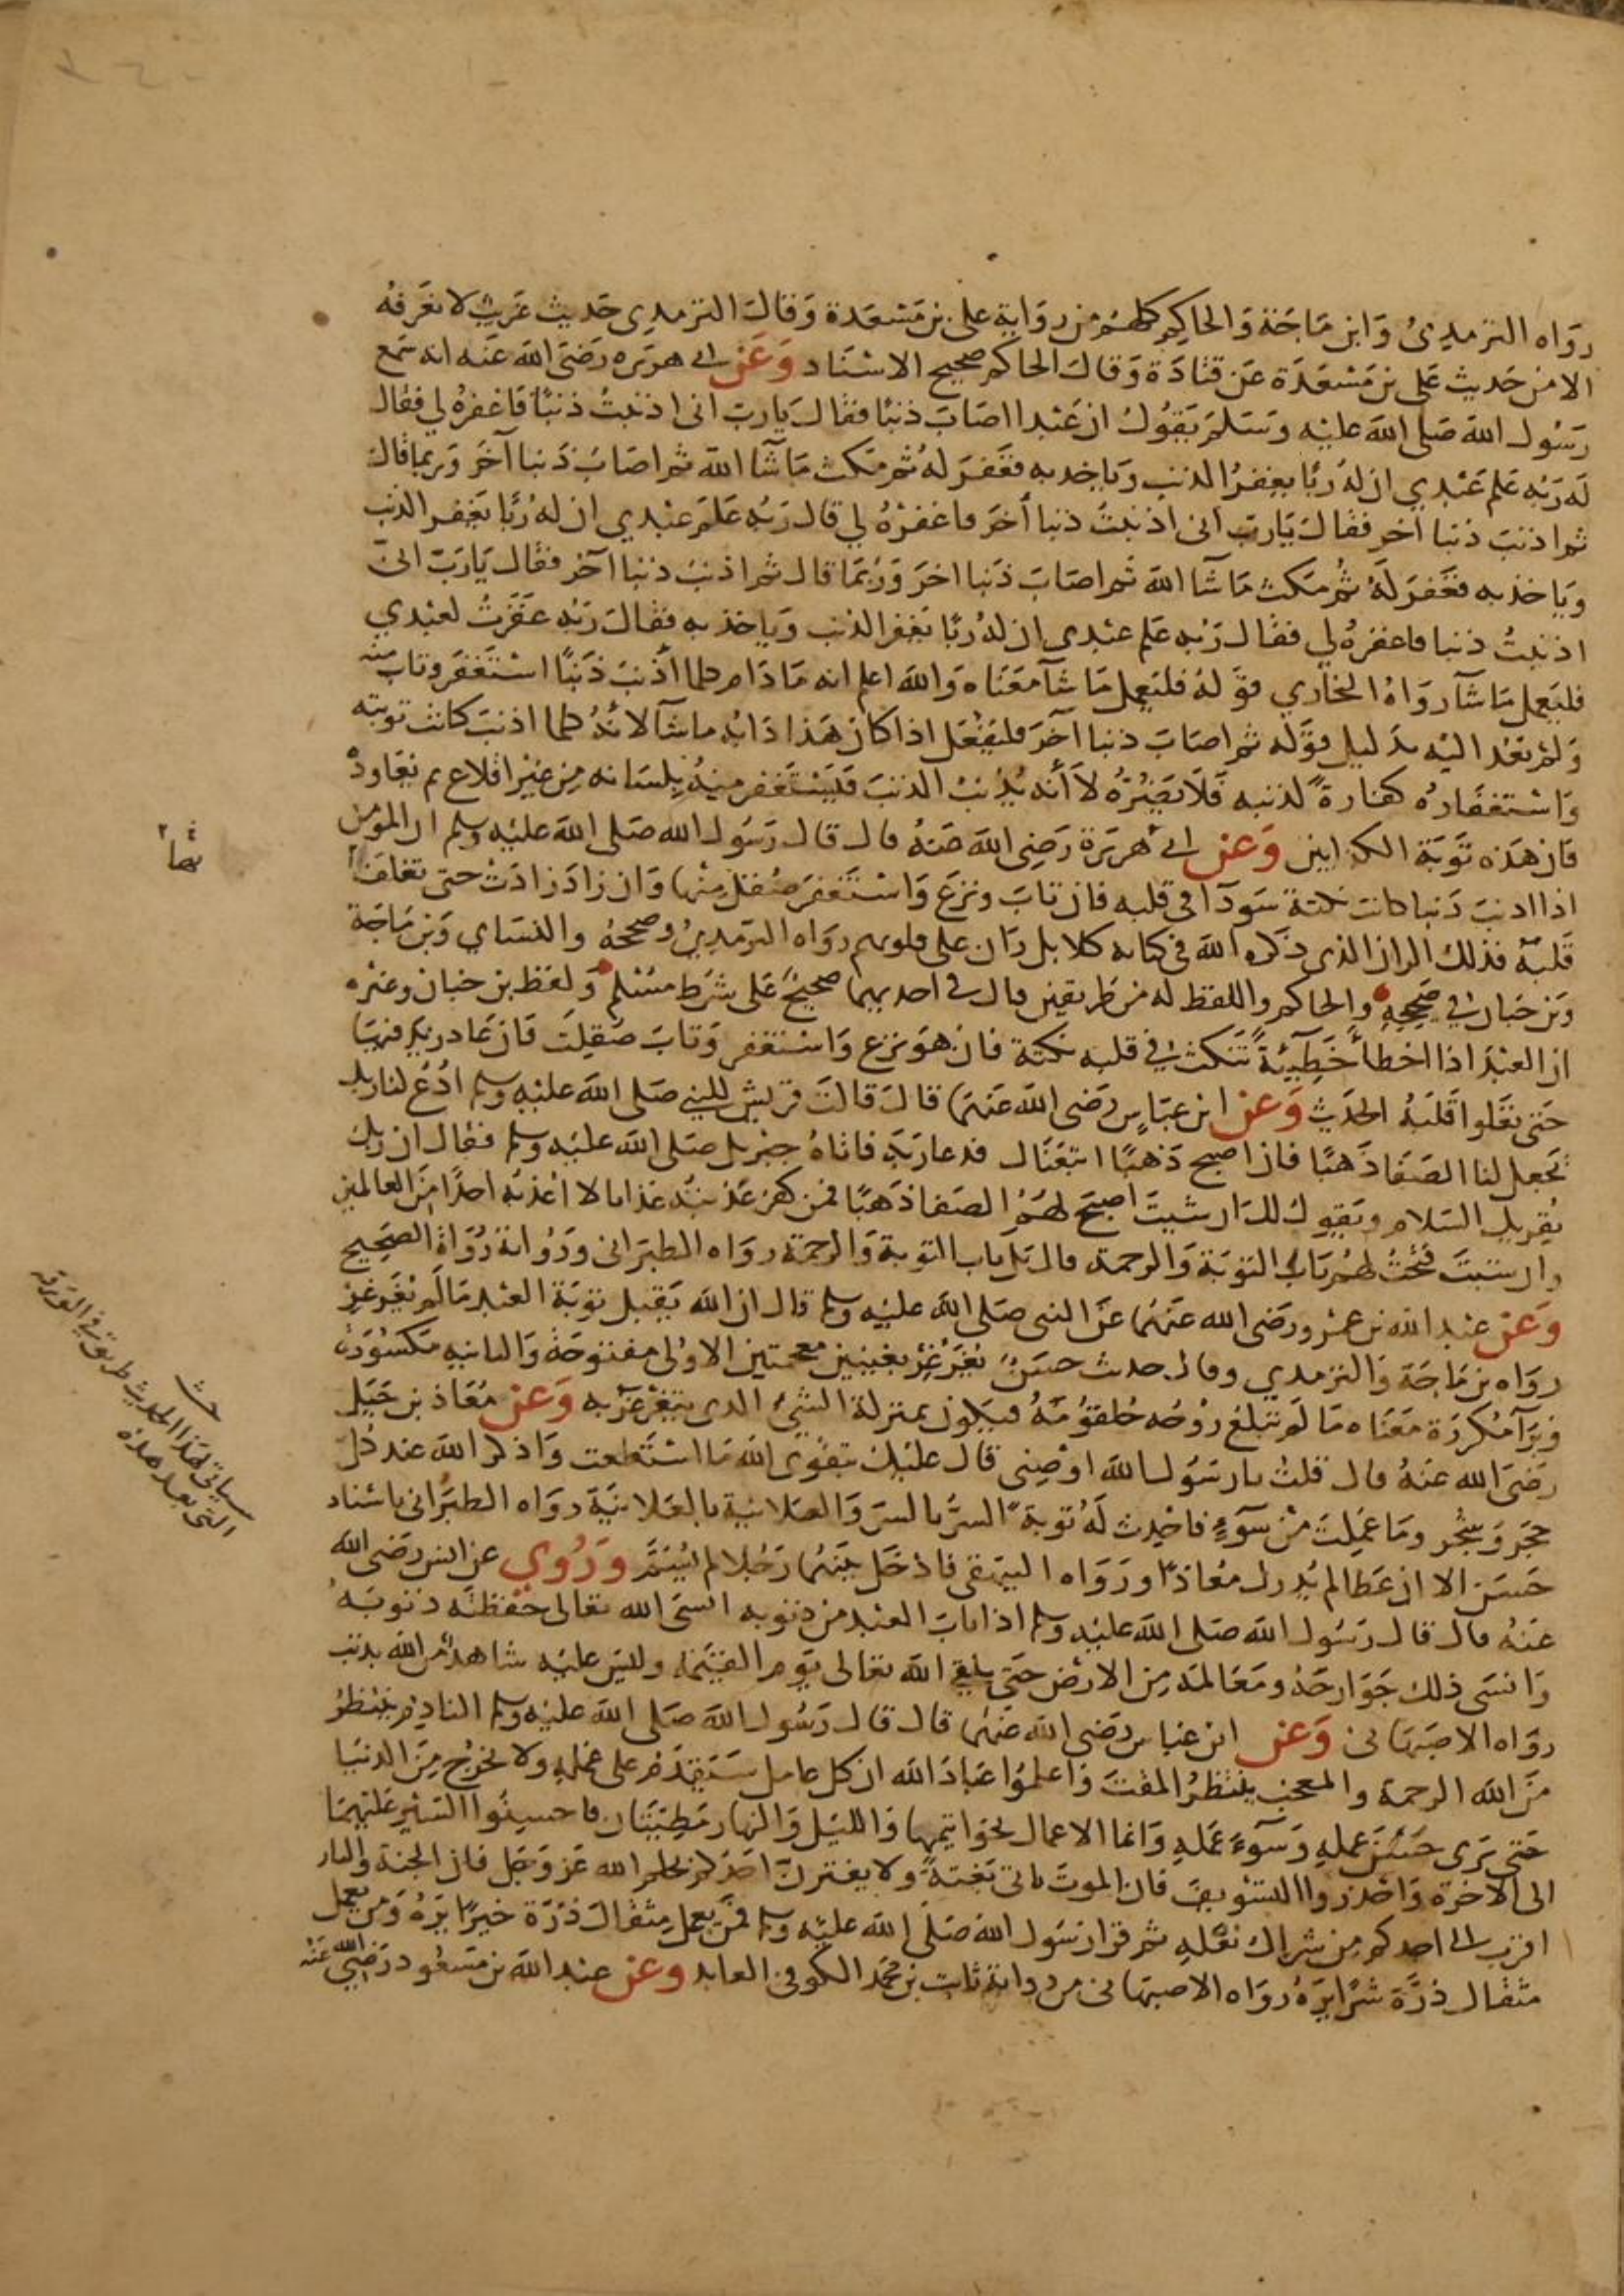 رواه الترمذي وابن ماجة والحاكم كلهم من رواية على بن مسعدة وقال الترمذي حديث غريب لا نعرفه
الا من حديث على بن مسعدة عن قتادة وقال الحاكم صحيح الاسناد وعن ابي هريره رضي الله عنه انه سمع
رسول الله صلى الله عليه وسلم يقول ان عبدا اصاب ذنبا فقال يارب انى اذنبت ذنبا فاغفره لي فقال
له ربه علم عبدي ان له ربا يغفر الذنب وياخذ به فغفر له ثم مكث ما شآ الله ثم اصاب ذنبا آخر وربما قال
ثم اذنب ذنبا اخر فقال يارب انى اذنبت ذنبا أخر فاغفره لي قال ربه علم عبدي ان له ربا يغفر الذنب
وياخذ به فغفر له ثم مكث ما شآ الله ثم اصاب ذنبا اخر وربما قال ثم اذنب ذنبا آخر فقال يارب انى
اذنبت ذنبا فاغفره لي فقال ربه علم عبدى ان له ربا يغفر الذنب وياخذ به فقال ربه غفرت لعبدي
فليعمل ما شآ رواه البخاري قوله فليعمل ما شآ معناه والله اعلم انه ما دام كلما أذنب ذنبا استغفر وتاب منه
ولم يعد اليه بدليل قوله ثم اصاب ذنبا آخر فليفعل اذا كان هذا دابه ما شآ لانه كلما اذنب كانت توبته
واستغفاره كفارة لذنبه فلا يضره لا أنه يذنب الذنب فيستغفر منه بلسانه من غير اقلاع ثم يعاوده
فان هذه توبة الكذابين وعن ابي هريرة رضي الله عنه قال قال رسول الله صلى الله عليه وسلم ان المؤمن
اذا اذنب ذنبا كانت نكتة سودآ في قلبه فان تاب ونزع واستغفر صقل منها وان زاد زادت حتى تغلف
قلبه فذلك الران الذى ذكره الله في كتابه كلا بل ران على قلوبهم رواه الترمذي وصححه والنساي وبن ماجة
وبن حبان في صحيحه والحاكم واللفظ له من طريقين قال في احديهما صحيح على شرط مسلم ولفظ بن حبان وغيره
ان العبد اذا اخطأ خطيئة تنكت في قلبه نكتة فان هو نزع واستغفر وتاب صقلت فان عاد زيد فيها
حتى تعلوا قلبه الحديث وعن ابن عباس رضى الله عنهما قال قالت قريش للنبي صلى الله عليه وسلم ادع لنا ربك
تجعل لنا الصفا ذهبا فان اصبح ذهبا اتبعناك فدعا ربه فاتاه جبريل صلى الله عليه وسلم فقال ان ربك
يقريك السلام ويقول لك ان شيت اصبح لهم الصفا ذهبا فمن كفر عذبته عذابا لا اعذبه احدا من العالمين
وان شيت فتحت لهم باب التوبة والرحمة قال بل باب التوبة والرحمة رواه الطبراني ورواته رواة الصحيح
وعن عبد الله بن عمرو رضى الله عنهما عن النبى صلى الله عليه وسلم قال ان الله يقبل توبة العبد ما لم يغرغر
رواه بن ماجة والترمذي وقال حديث حسن يغرغر بغينين معجمتين الاولى مفتوحة والثانية مكسورة
وبرآ مكررة معناه ما لم تبلغ روحه حلقومه فيكون بمنزلة الشئ الذى يتغرغر به وعن معاذ بن جبل
رضى الله عنه قال قلت يا رسول الله اوصنى قال عليك بتقوى الله ما استطعت واذكر الله عند كل
حجر وشجر وما عملت من سوء فاحدث له توبة السر بالسر والعلانية بالعلانية رواه الطبراني باسناد
حسن الا ان عطا لم يدرك معاذا ورواه البيهقي فادخل بينهما رجلا لم يسم وروي عن انس رضى الله
عنه قال قال رسول الله صلى الله عليه وسلم اذا تاب العبد من ذنوبه انسى الله تعالى حفظته ذنوبه
وانسى ذلك جوارحه ومعالمه من الارض حتى يلقى الله تعالى يوم القيمة وليس عليه شاهد من الله بذنب
رواه الاصبهاني وعن ابن عباس رضى الله عنهما قال قال رسول الله صلى الله عليه وسلم النادم ينتظر
من الله الرحمة والمعجب ينتظر المقت واعلموا عباد الله ان كل عامل سيقدم على عمله ولا يخرج من الدنيا
حتى يرى حسن عمله وسوء عمله وانما الاعمال بخواتيمها والليل والنهار مطيتان فاحسنوا السير عليهما
الى الاخرة واحذروا التسويف فان الموت ياتى بغتة ولا يغترن احدكم بحلم الله عز وجل فان الجنة والنار
اقرب الى احدكم من شراك نعله ثم قرا رسول الله صلى الله عليه وسلم فمن يعمل مثقال ذرة خيرا يره ومن يعمل
مثقال ذرة شرا يره رواه الاصبهاني من رواية ثابت بن محمد الكوفى العابد وعن عبد الله بن مسعود رضى الله عنه
بها
سياتى لهذا الحديث طريق في الورقة
التى بعد هذه